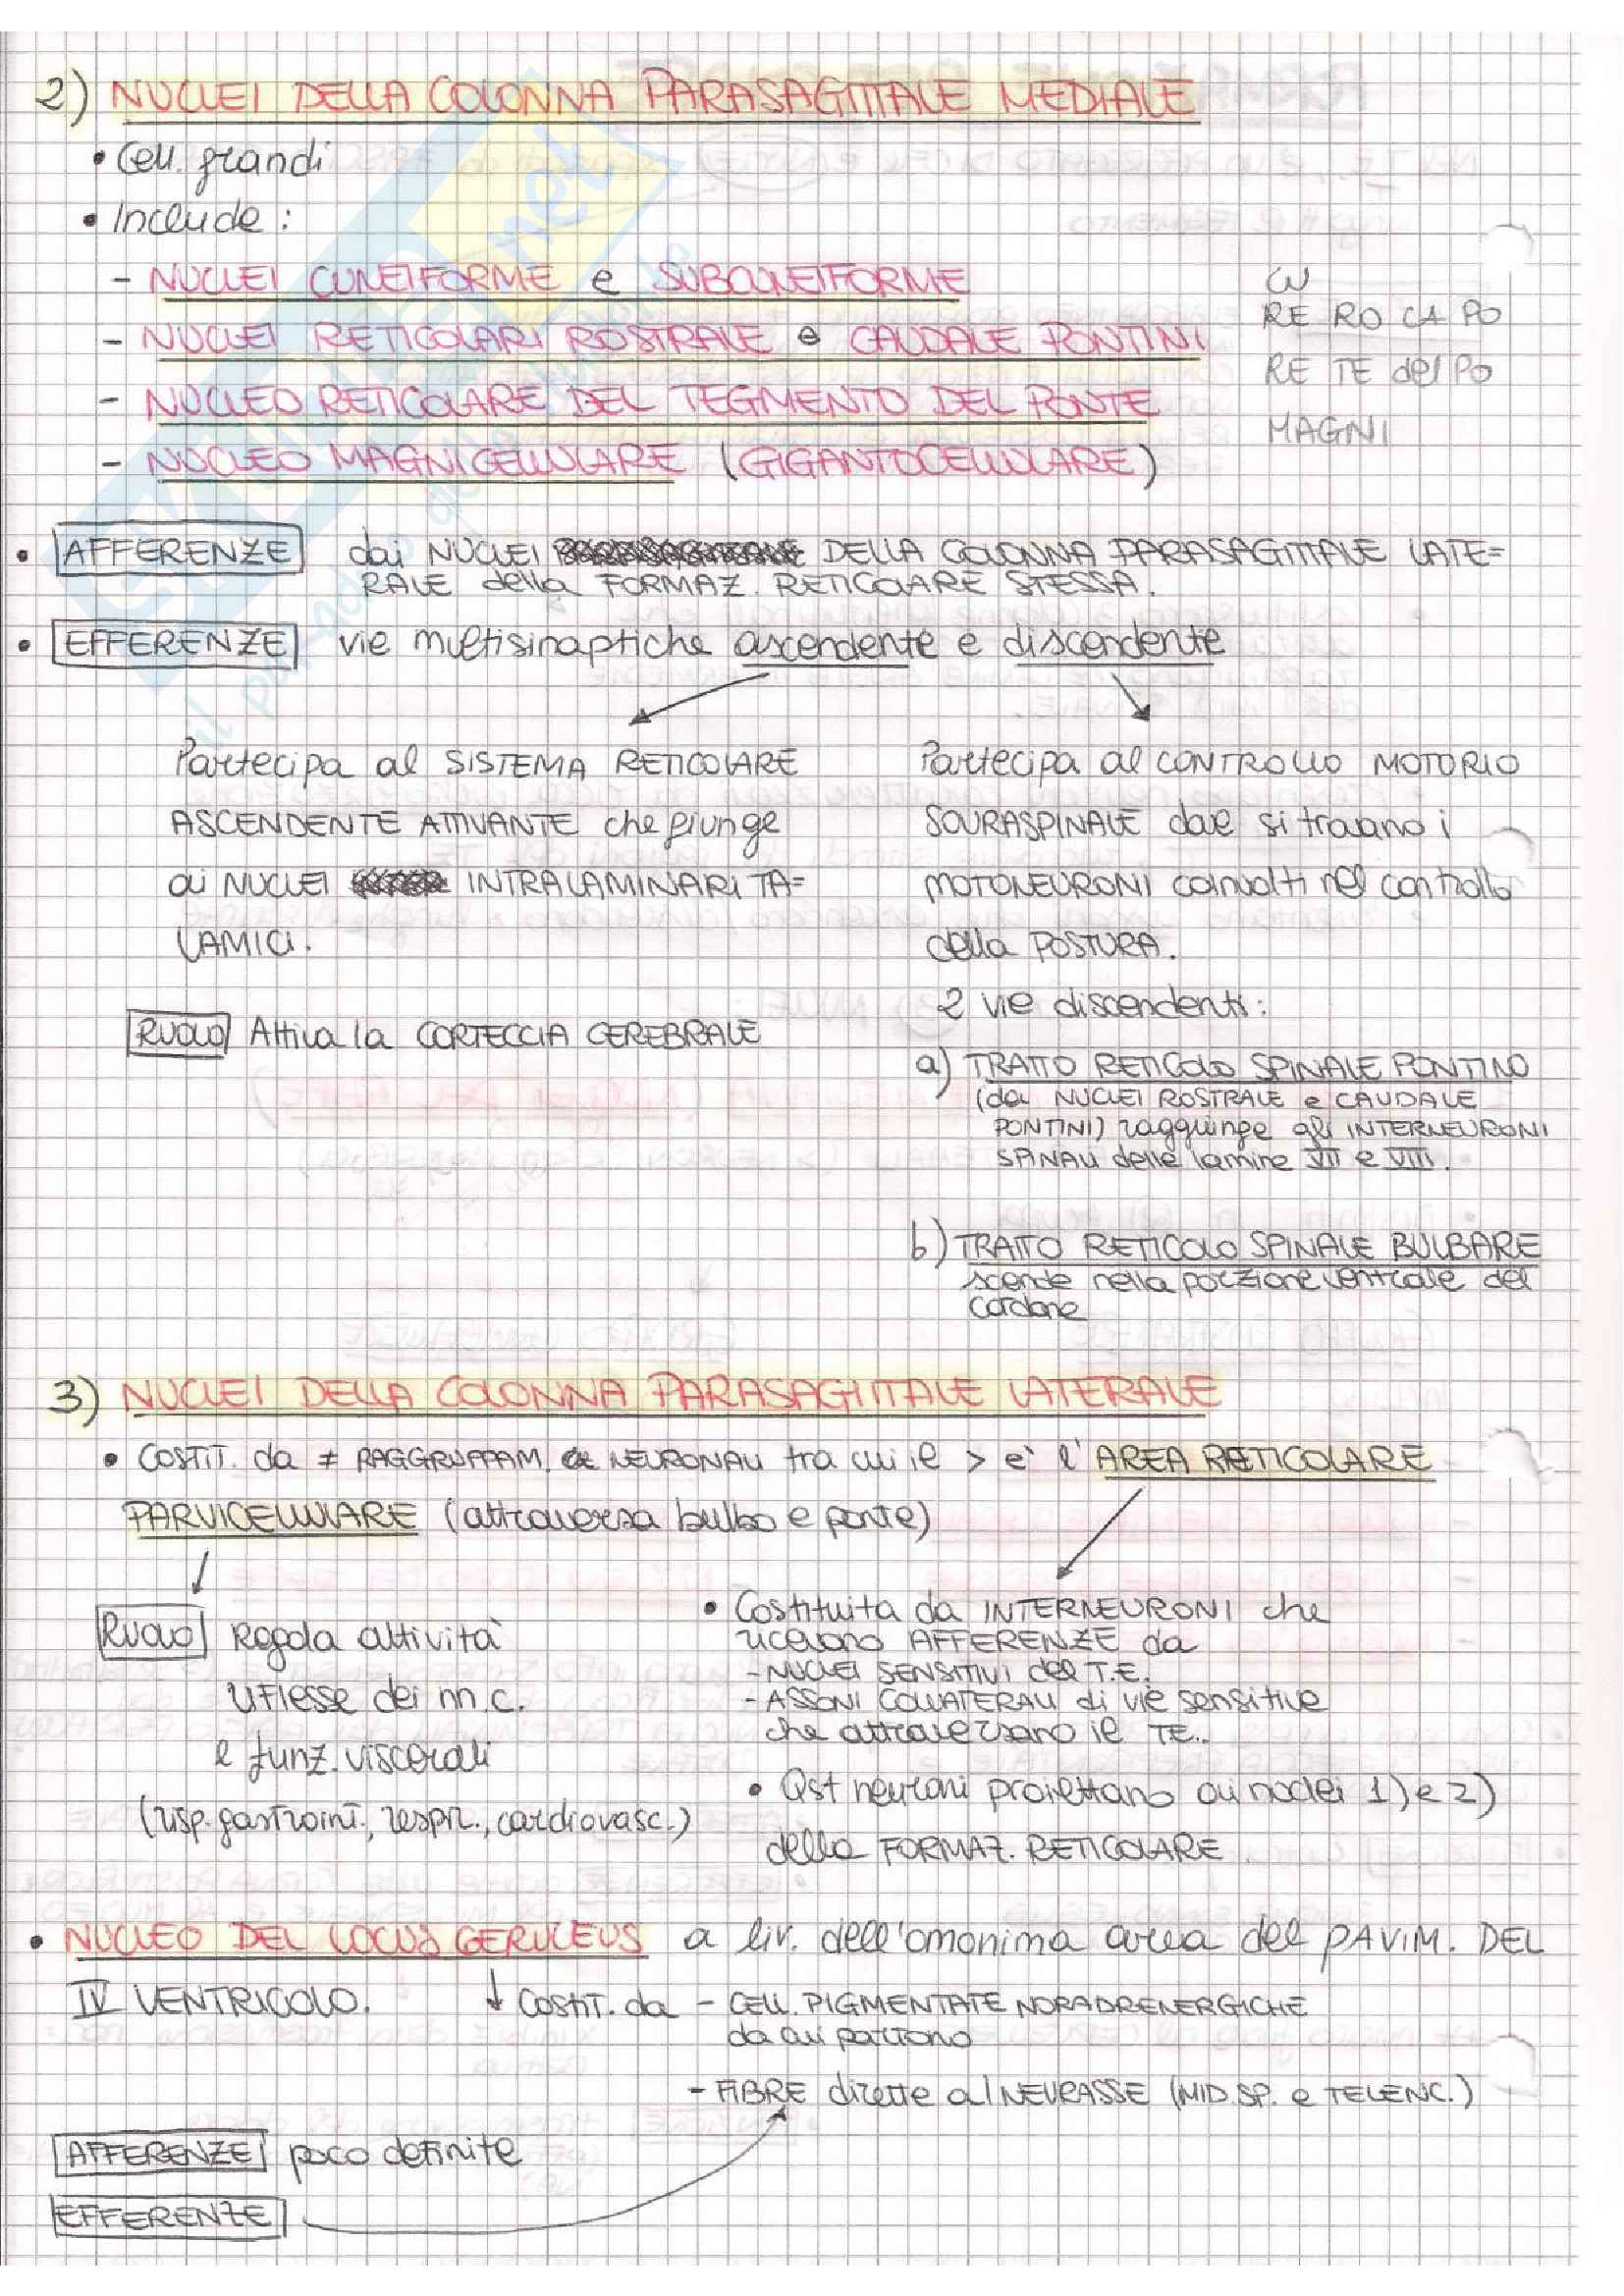 2) NUCLEI DELLA COLONNA PARASAGITTALE MEDIALE
• Cell. grandi
• Include:
- NUCLEI CUNEIFORME e SUBCUNEIFORME
CU
- NUCLEI RETICOLARI ROSTRALE e CAUDALE PONTINI
RE RO CA PO
- NUCLEO RETICOLARE DEL TEGMENTO DEL PONTE
RE TE del PO
- NUCLEO MAGNICELLULARE (GIGANTOCELLULARE)
MAGNI
• AFFERENZE dai NUCLEI DELLA COLONNA PARASAGITTALE LATE=
RALE della FORMAZ. RETICOLARE STESSA.
• EFFERENZE vie multisinaptiche ascendente e discendente
Partecipa al SISTEMA RETICOLARE
ASCENDENTE ATTIVANTE che giunge
ai NUCLEI INTRALAMINARI TA=
LAMICI.
RUOLO Attiva la CORTECCIA CEREBRALE
Partecipa al CONTROLLO MOTORIO
SOVRASPINALE dove si trovano i
MOTONEURONI coinvolti nel controllo
della POSTURA.
2 vie discendenti:
a) TRATTO RETICOLO SPINALE PONTINO
(da NUCLEI ROSTRALE e CAUDALE
PONTINI) raggiunge gli INTERNEURONI
SPINALI delle lamine VII e VIII.
b) TRATTO RETICOLO SPINALE BULBARE
scende nella porzione ventrale del
cordone
3) NUCLEI DELLA COLONNA PARASAGITTALE LATERALE
• COSTIT. da ≠ RAGGRUPPAM. NEURONALI tra cui il > e' l'AREA RETICOLARE
PARVICELLULARE (attraversa bulbo e ponte)
RUOLO Regola attività
riflesse dei m.c.
e funz. viscerali
(risp. gastroint., respir., cardiovasc.)
• Costituita da INTERNEURONI che
ricevono AFFERENZE da
- NUCLEI SENSITIVI del T.E.
- ASSONI COLLATERALI di vie sensitive
che attraversano il TE..
• Qst neuroni proiettano ai nuclei 1) e 2)
della FORMAZ. RETICOLARE
• NUCLEO DEL LOCUS CERULEUS a liv. dell'omonima area del PAVIM. DEL
IV VENTRICOLO. ↓ COSTIT. da - CELL. PIGMENTATE NORADRENERGICHE
da cui partono
- FIBRE dirette al NEURASSE (MID. SP. e TELENC.)
AFFERENZE poco definite
EFFERENZE